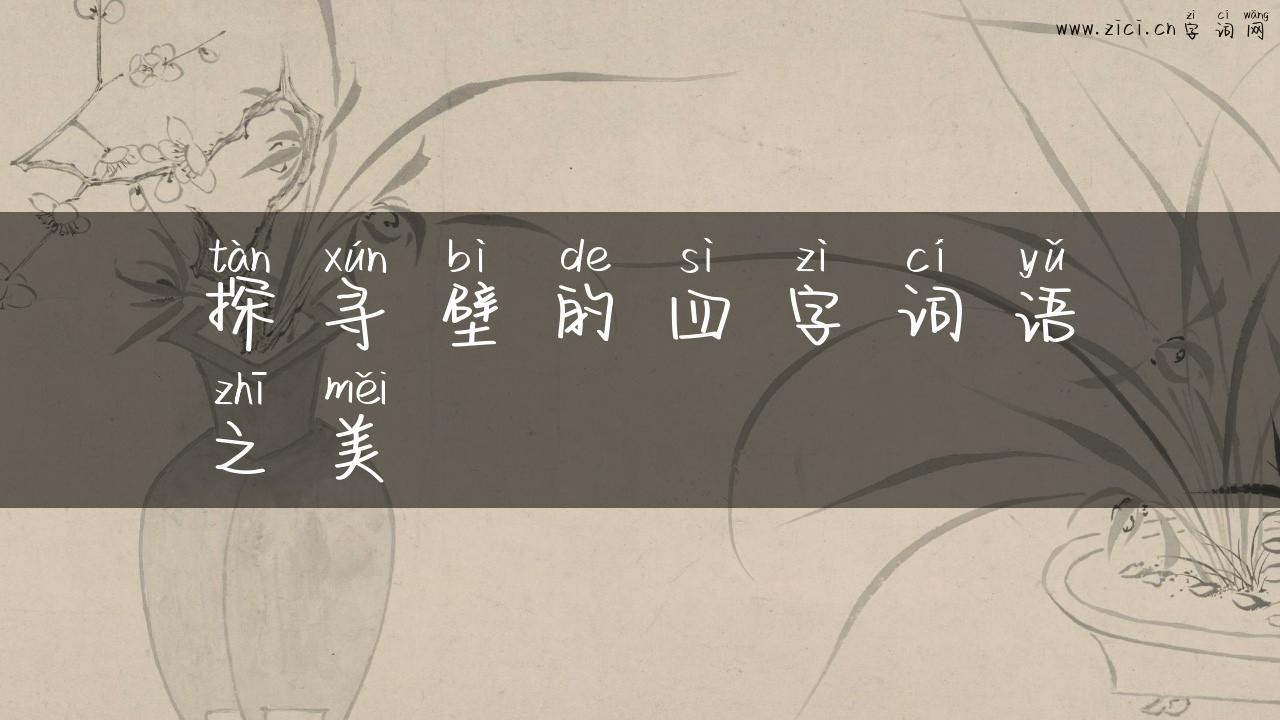 zì cí wǎng
www.zici.cn 字词网
tàn xún bì de sì zì cí yǔ
探寻壁的四字词语
zhī měi
之美